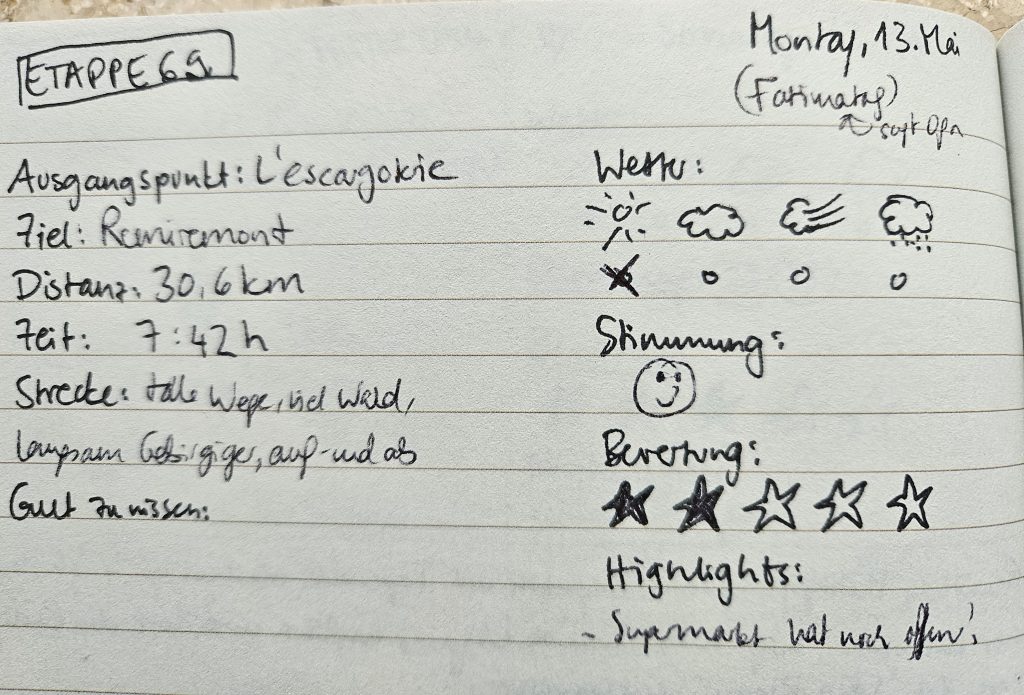 ETAPPE 69
Montag, 13. Mai
(Fatimatag)
sagt Opa
Ausgangspunkt: L'escargotrie
Ziel: Remiremont
Distanz: 30,6 km
Zeit: 7:42 h
Strecke: tolle Wege, viel Wald,
langsam Gebirgiger, auf- und ab
Gut zu wissen:
Wetter:
Stimmung:
Bewertung:
Highlights:
- Supermarkt hat noch offen!